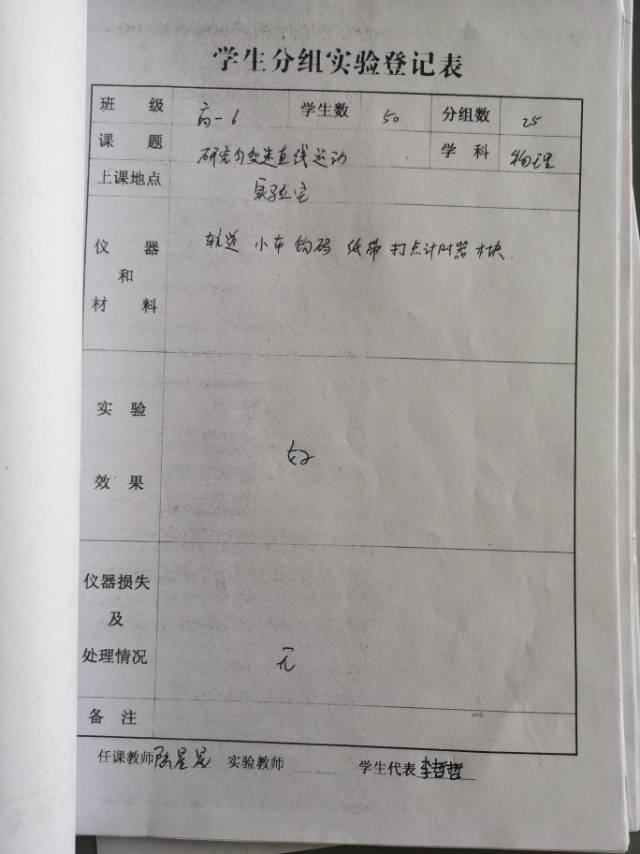 学生分组实验登记表
班级 高一6 学生数 50 分组数 25
课题 研究匀变速直线运动 学科 物理
上课地点 实验室
仪器和材料 轨道 小车 钩码 纸带 打点计时器 木块.
实验效果 好
仪器损失及处理情况 无
备注
任课教师 陈星晃 实验教师 学生代表 李哲哲